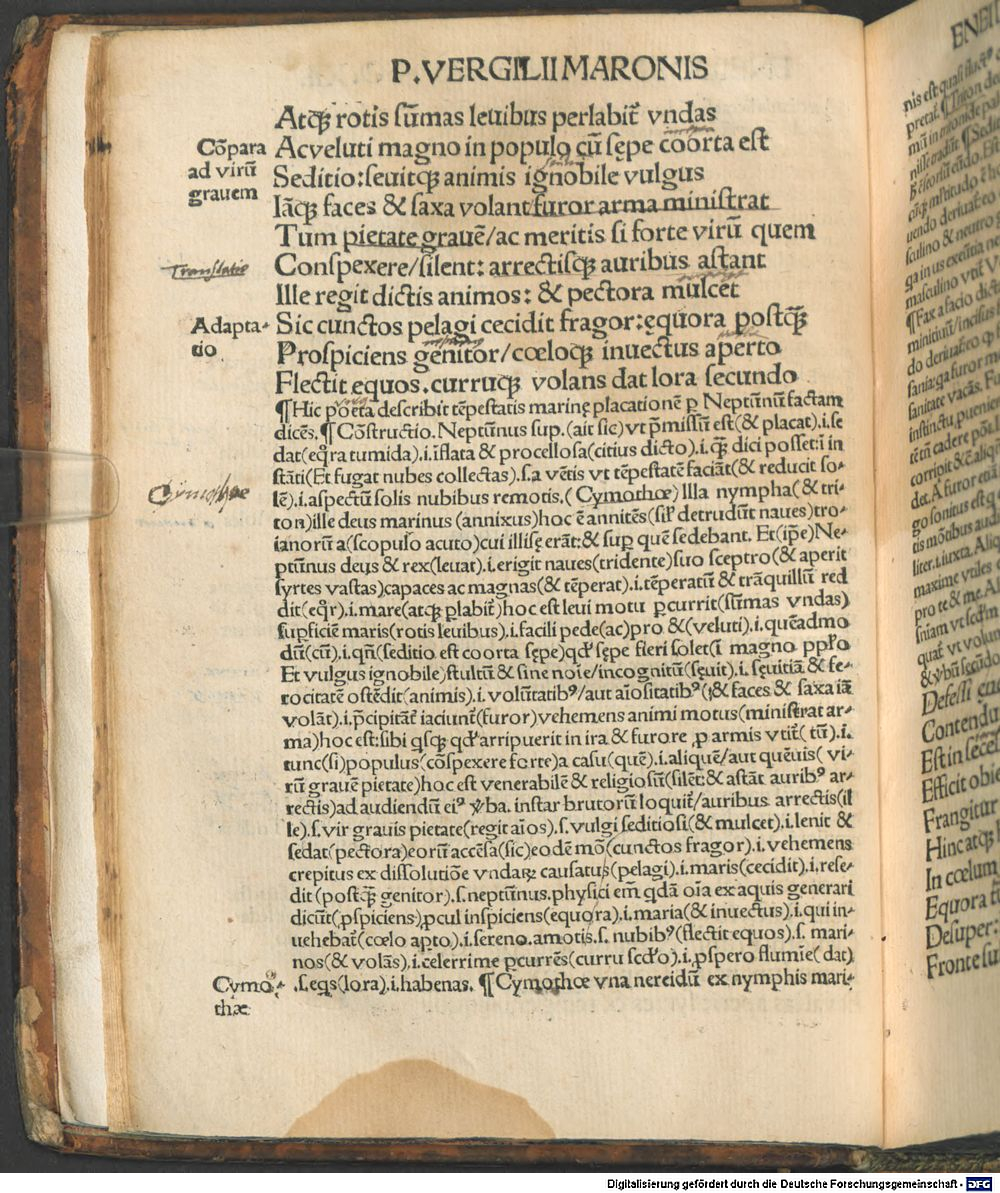 P. VERGILII MARONIS
Atq̃ rotis sūmas leuibus perlabit᷑ vndas
Cōpara
ad virū
grauem
Ac veluti magno in populo cū sępe coorta est
Seditio: seuitq̃ animis ignobile vulgus
Iāq̃ faces & saxa volant/furor arma ministrat
Tum pietate grauē/ac meritis si forte virū quem
Translatio
Conspexere/silent: arrectisq̃ auribus astant
Ille regit dictis animos: & pectora mulcet
Adapta-
tio
Sic cunctos pelagi cecidit fragor: ęquora postq̃
Prospiciens genitor/cœloq̃ inuectus aperto
Flectit equos. curruq̃ volans dat lora secundo
¶ Hic poeta describit tēpestatis marinę placationē p Neptūnū factam
dicēs. ¶ Cōstructio. Neptūnus sup. (ait sic) vt p̄missū est (& placat) .i. se
dat (eq̄ra tumida) .i. īflata & procellosa (citius dicto) .i. q̄ dici posset: ī in
stāti (Et fugat nubes collectas) .s. a vētis vt tēpestatē faciāt (& reducit so-
lē) .i. aspectū solis nubibus remotis. (Cymothœ) Illa nympha (& tri-
Cymothoe
ton) ille deus marinus (annixus) hoc ē annitēs (sil' detrudūt naues) tro-
ianorū a (scopulo acuto) cui illisę erāt: & sup quē sedebant. Et (ip̄e) Ne-
ptūnus deus & rex (leuat) .i. erigit naues (tridente) suo sceptro (& aperit
syrtes vastas) capaces ac magnas (& tēperat) .i. tēperatū & trāquillū red
dit (eq̄r) .i. mare (atq̃ plabit᷑) hoc est leui motu pcurrit (sūmas vndas)
supficiē maris (rotis leuibus) .i. facili pede (ac) pro & (veluti) .i. quēadmo
dū (cū) .i. qn̄ (seditio est coorta sępe) qd' sępe fieri solet (ī magno pp̄lo
Et vulgus ignobile) stultū & sine noīe/incognitū (sęuit) .i. sęuitiā & fe-
rocitatē ostēdit (animis) .i. volūtatibꝰ/aut aīositatibꝰ (& faces & saxa iā
volāt) .i. p̄cipitāt᷑ iaciunt᷑ (furor) vehemens animi motus (ministrat ar-
ma) hoc est: sibi qsq̃ qd' arripuerit in ira & furore, p armis vtit᷑ (tū) .i.
tunc (si) populus (cōspexere forte) a casu (quē) .i. aliquē/aut quēuis (vi-
rū grauē pietate) hoc est venerabilē & religiosū (silēt: & astāt auribꝰ ar-
rectis) ad audiendū eiꝰ v̄ba. instar brutorū loquit᷑/auribus arrectis (il
le) .s. vir grauis pietate (regit aīos) .s. vulgi seditiosi (& mulcet) .i. lenit &
sedat (pectora) eorū accēsa (sic) eodē mō (cunctos fragor) .i. vehemens
crepitus ex dissolutiōe vndaꝝ causatus (pelagi) .i. maris (cecidit) .i. rese-
dit (postq̃ genitor) .s. neptūnus. physici em̄ qdā oīa ex aquis generari
dicūt (pspiciens) pcul inspiciens (equora) .i. maria (& inuectus) .i. qui in-
uehebat᷑ (cœlo apto) .i. sereno. amotis .s. nubibꝰ (flectit equos) .s. mari-
nos (& volās) .i. celerrime pcurrēs (curru scd̄o) .i. pspero flumie (dat)
Cymo-
thœ
.s. eqs (lora) .i. habenas. ¶ Cymothœ vna nereidū ex nymphis mari-
Digitalisierung gefördert durch die Deutsche Forschungsgemeinschaft - DFG